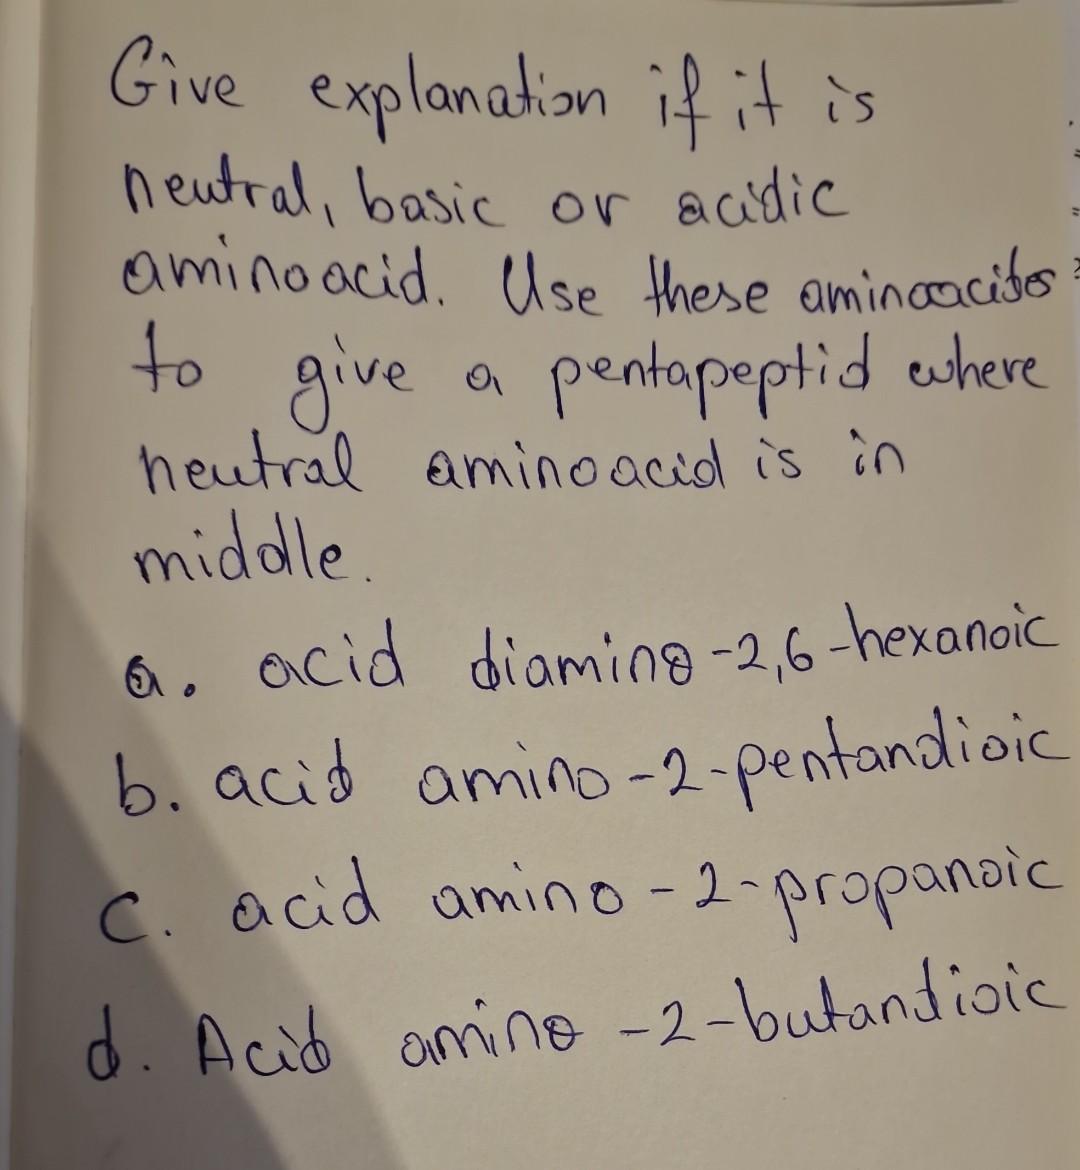 Give explanation if it is
neutral, basic or acidic
aminoacid. Use these aminoacides
to give a pentapeptid where
neutral aminoacid is in
middle.
a. acid diamino-2,6-hexanoic
b. acid amino-2-pentandioic
c. acid amino-2-propanoic
d. Acid amino-2-butandioic